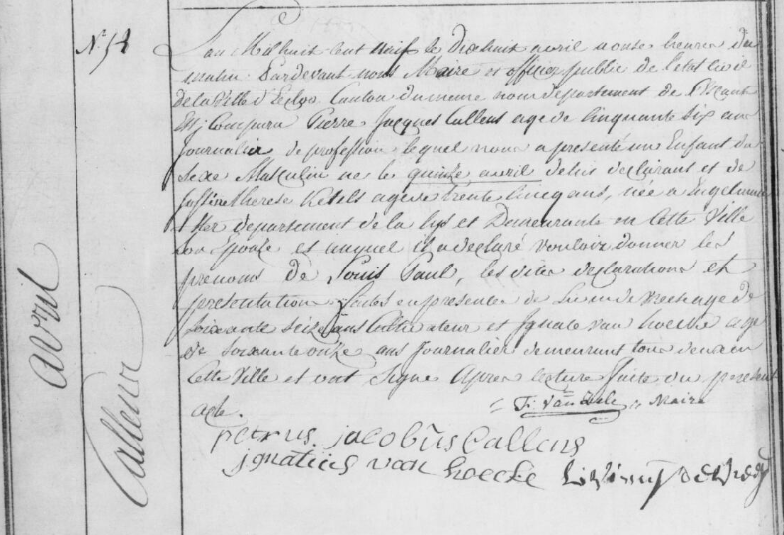 N. 54
L'an Mil huit cent neuf le Dix huit avril a onze heures du
matin Pardevant nous Maire et officier public de l'etat civil
de la Ville d'Eecloo Canton du meme nom departement de l'Escaut
Est comparu Pierre Jacques Callens age de cinquante six ans
journalier de profession lequel nous a presenté un Enfant du
sexe Masculin né le quinze avril de lui declarant et de
therese Ketels agée de trente cinq ans, née a Ingelmun
ster departement de la lys et Demeurante en cette Ville
son Epouse et auquel il a declaré vouloir donner les
prenoms de Louis Paul, les dites declarations et
presentation faites en presence de Lievin de Vreese age de
soixante seize ans Cultivateur et Ignace van hoecke age
de soixante onze ans journalier demeurant tous deux en
cette Ville et ont signe Apres lecture faite du present
acte. Maire
petrus jacobus Callens
ignatius van hoecke Livinus de
avril
Callens